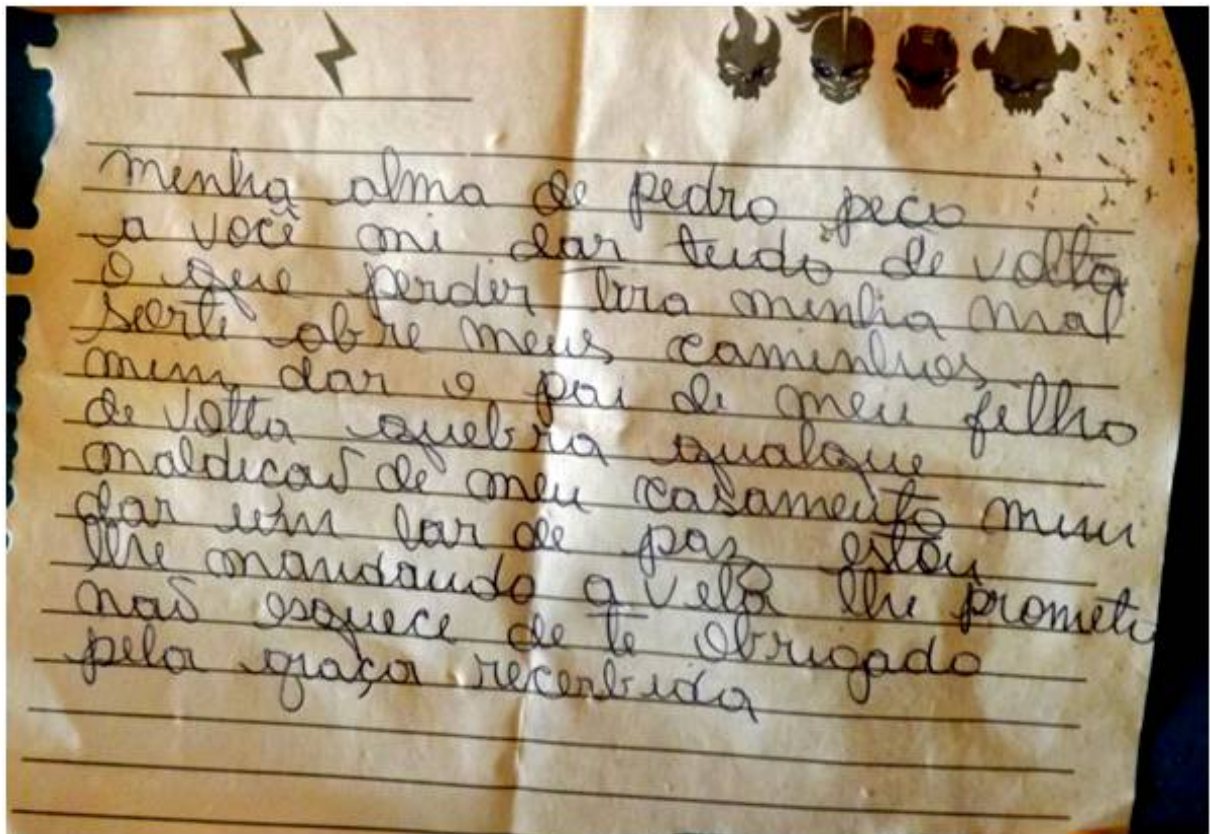 minha alma de pedro peco
a você mi dar tudo de volta
o que perder tira minha mal
sorte abre meus caminhos
mim dar o pai de meu filho
de volta quebra qualque
maldicaõ de meu casamento mim
dar um lar de paz estou
lhe mandando a vela lhe prometi
naõ esquece de te obrigado
pela graça recerbida